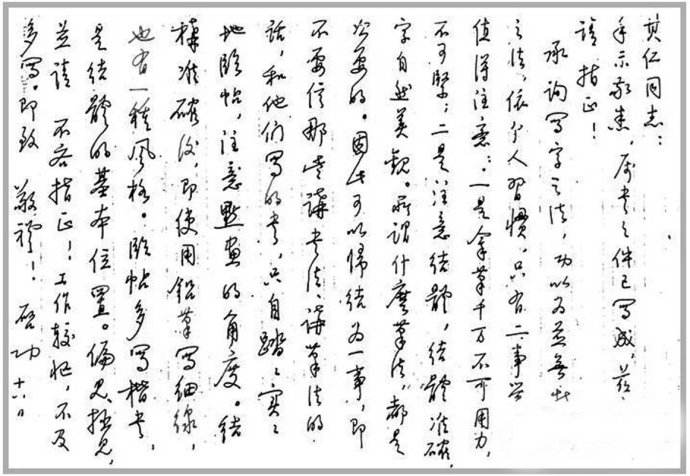 其仁同志：
手示敬悉，属书之件已写成，兹
请指正！
承询写字之法，功以为並無
之法，依个人習慣，只有二事
值得注意：一是拿笔千万不可用力，
不可緊；二是注意结體，结體准確，
字自然美觀。所谓什麼笔法，都是
次要的。因此可以歸结为一事，即
不要信那些講书法、講笔法的
話，和他们写的书，只自踏踏实实
地临帖，注意點畫的角度。结
構准確後，即使用鉛笔写细線，
也有一種風格。临帖多写楷书，
是结體的基本位置。偏见拙见，
並请 不吝指正！工作較忙，不及
多写。即致 敬禮！ 启功 十六日